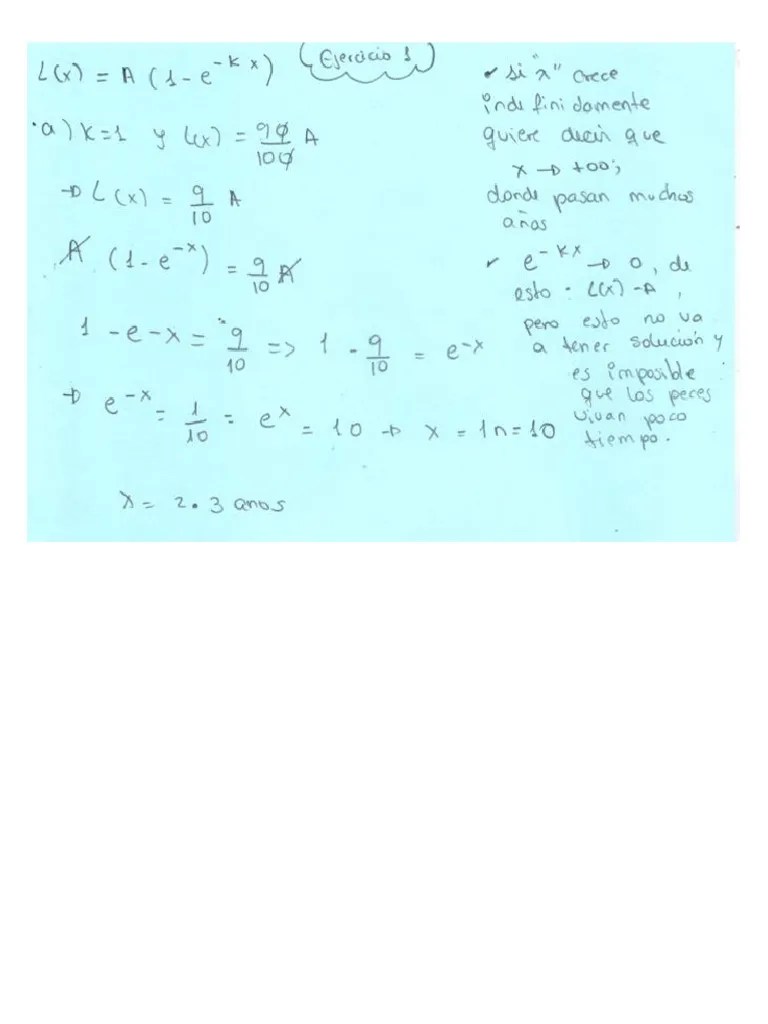 Ejercicio 1
L(x) = A (1 - e^-kx)
a) K=1 y L(x) = 90/100 A
→ L(x) = 9/10 A
A (1 - e^-x) = 9/10 A
1 - e - x = 9/10 => 1 - 9/10 = e^-x
→ e^-x = 1/10 = e^x = 10 → x = ln = 10
x = 2.3 anos
✓ si "x" crece
indefinidamente
quiere decir que
x → +∞;
donde pasan muchos
años
✓ e^-kx → 0, de
esto : L(x) - A,
pero esto no va
a tener solución y
es imposible
que los peces
vivan poco
tiempo.